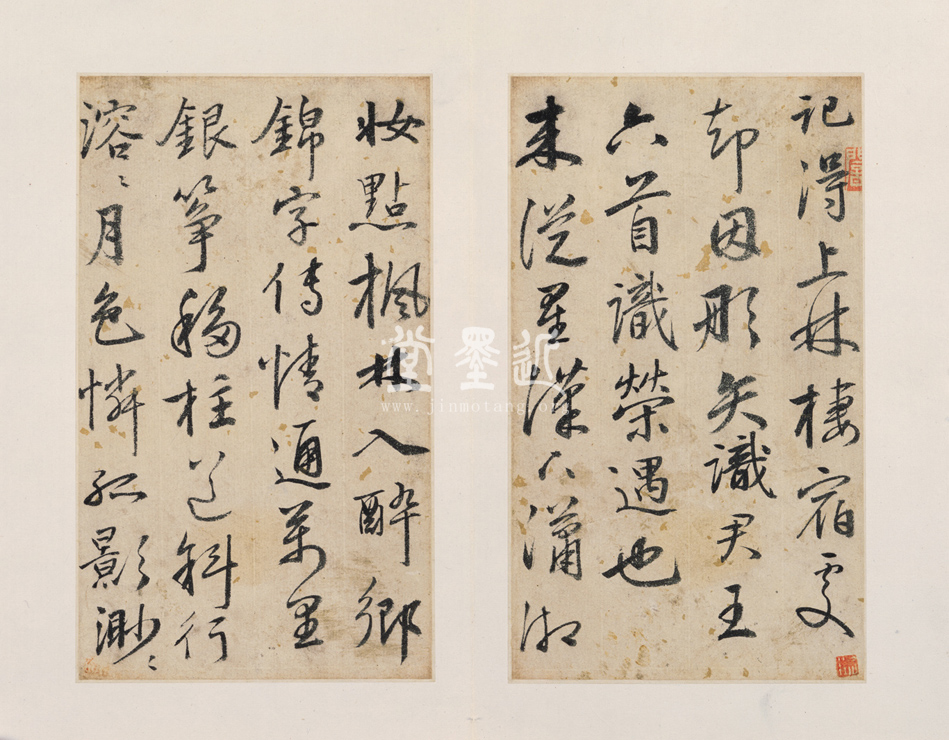 記得上林棲宿處
却因彤矢識君王
六首識榮遇也
来從星漢下瀟湘
妝點楓林入醉鄉
錦字傳情通萬里
銀箏移柱之斜行
溶〻月色憐孤影渺〻
近墨堂
www.jinmotang.org